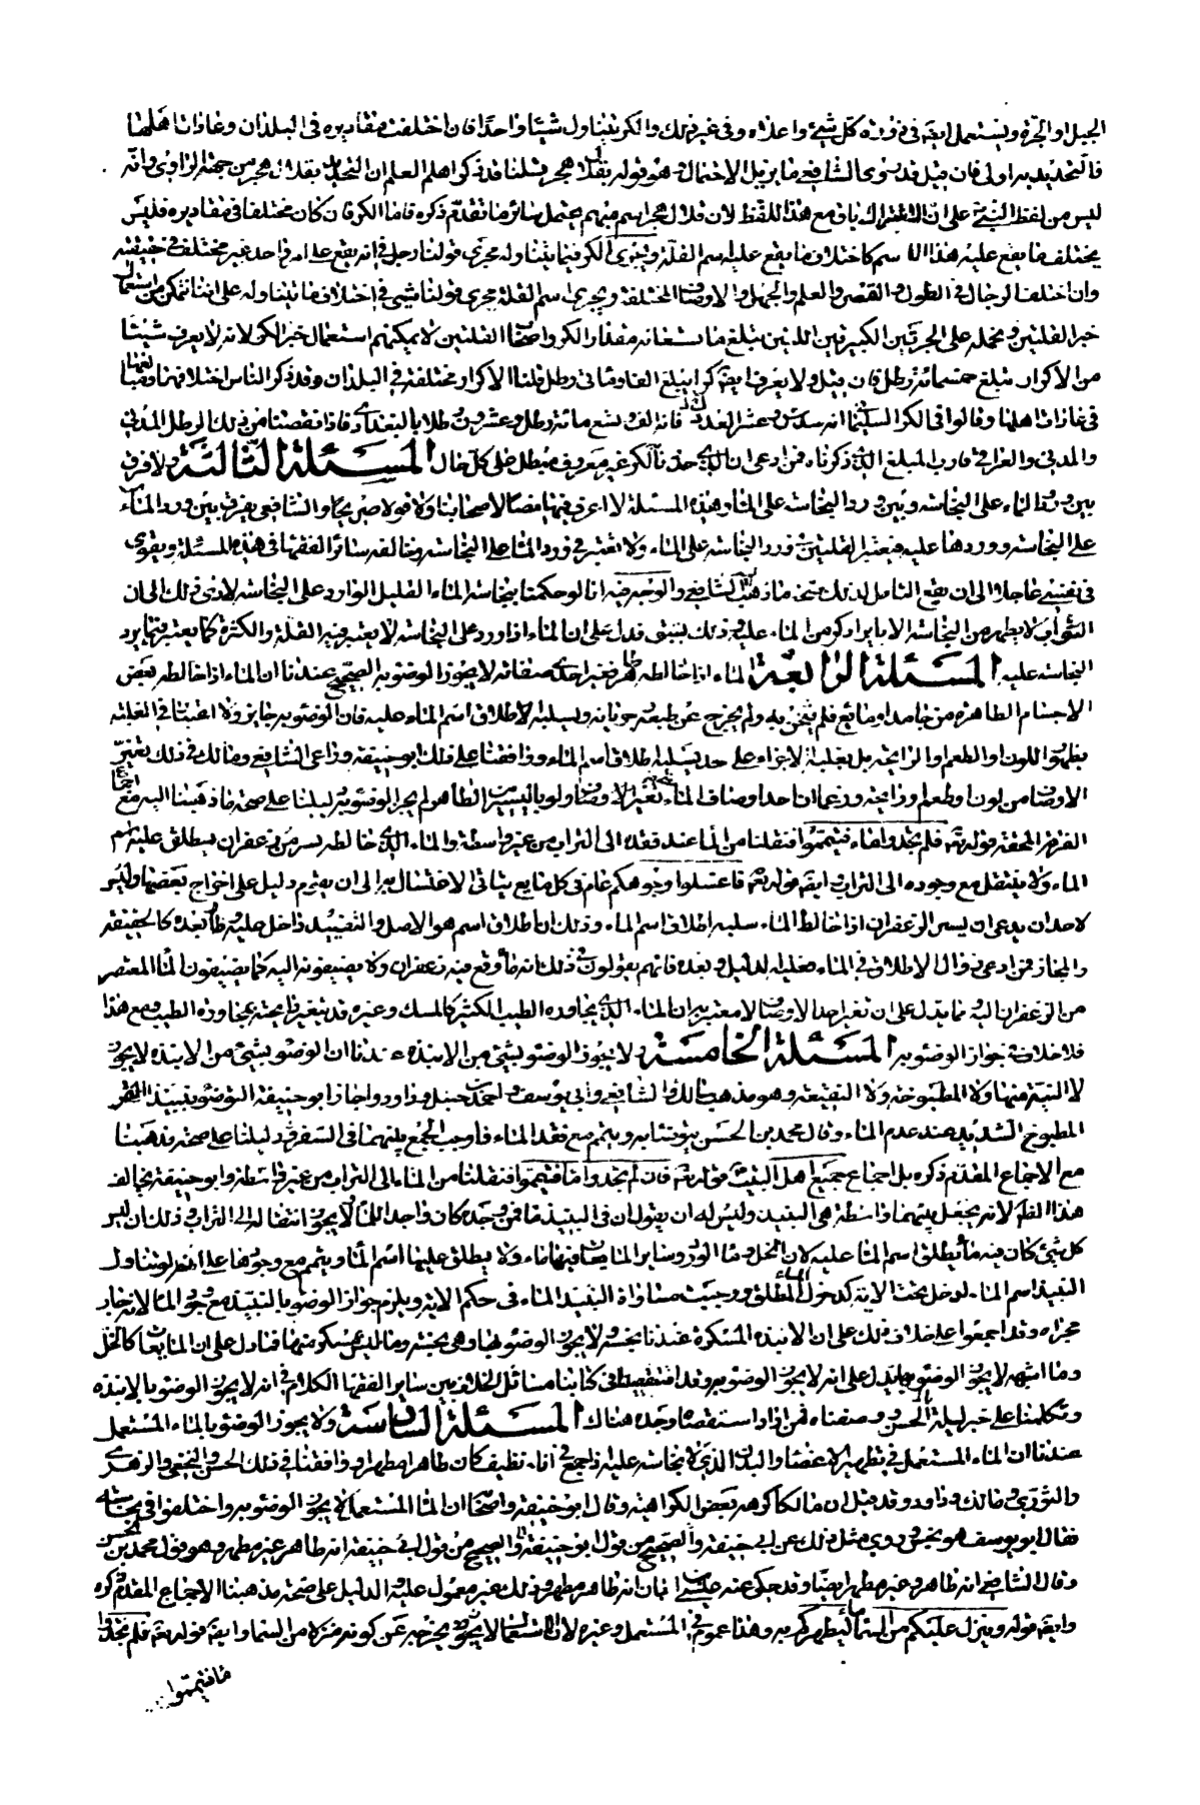 الجبل او الجرة ويستعمل ايضا في ذروة كل شيء واعلاه وفي غير ذلك والكر يتناول شيئا واحدا فان اختلفت مقاديره في البلدان وعادات اهلها
فالتحديد به اولى فان قيل قد سوى الشافعي ما يزيل الاحتمال وهو قوله بقلال هجر قلنا قد ذكر اهل العلم ان التحديد بقلال هجر من جهة الراوي وانه
ليس من لفظ النبي على ان الاشتراك باق مع هذا اللفظ لان قلال هجر اسم مبهم يحتمل سائر ما تقدم ذكره فاما الكر فان كان مختلفا في مقاديره فليس
يختلف ما يقع عليه هذا الاسم كاختلاف ما يقع عليه اسم القلة ويجري الكر فيما يتناوله مجرى قولنا رجل في انه يقع على امر واحد غير مختلف في حقيقته
وان اختلف الرجال في الطول والقصر والعلم والجهل والاوصاف المختلفة ويجري اسم القلة مجرى قولنا شيء في اختلاف ما يتناوله على اننا نتمكن من استعمال
خبر القلتين ونحمله على الجرتين الكبيرتين اللتين تبلغ ما تسعانه مقدار الكر واصحاب القلتين لا يمكنهم استعمال خبر الكر لانه لا يعرف شيئا
من الاكرار تبلغ خمسمائة رطل فان قيل ولا يعرف ايضا كرا يبلغ الفا ومائتي رطل قلنا الاكرار مختلفة في البلدان وقد ذكر الناس اختلافها ومبالغها
في عادات اهلها وقالوا في الكر السليماني انه سدس وعشر العدد فانه الف وسبع مائة رطل وعشرون رطلا بالبغدادي فاذا نقصنا من ذلك الرطل المدني
والمدني والعراقي قارب المبلغ الذي ذكرناه فمن ادعى ان الذي حدنا الكر غير معروف مبطل على كل حال المسئلة الثالثة ولا فرق
بين ورود الماء على النجاسة وبين ورود النجاسة على الماء وهذه المسئلة لا اعرف فيها نصا لاصحابنا ولا قولا صريحا والشافعي يفرق بين ورود الماء
على النجاسة وورودها عليه فيعتبر القلتين في ورود النجاسة على الماء ولا يعتبر في ورود الماء على النجاسة وخالفه سائر الفقهاء في هذه المسئلة ويقوى
في نفسي عاجلا الى ان يقع التامل لذلك صحة ما ذهب اليه الشافعي والوجه فيه انا لو حكمنا بنجاسة الماء القليل الوارد على النجاسة لادى ذلك الى ان
الثوب لا يطهر من النجاسة الا بايراد كر من الماء عليه وذلك يشق فدل على ان الماء اذا ورد على النجاسة لا يعتبر فيه القلة والكثرة كما يعتبر فيما يرد
النجاسة عليه المسئلة الرابعة الماء اذا خالطه طاهر فغير احدى صفاته لا يجوز الوضوء به الصحيح عندنا ان الماء اذا خالطه بعض
الاجسام الطاهرة من جامد او مائع فلم يثخن به ولم يخرج عن طبعه وجريانه ويسلبه لاطلاق اسم الماء عليه فان الوضوء به جايز ولا اعتبار في الغلبة
بظهور اللون والطعم والرائحة بل بغلبة الاجزاء على حد يسلبه اطلاق اسم الماء ووافقنا على ذلك ابو حنيفة وراعى الشافعي ومالك في ذلك تغير
الاوصاف من لون وطعم ورائحة وزعما ان احد اوصاف الماء متى تغير الاوصاف ولو باليسير الطاهر لم يجز الوضوء به دليلنا على صحة ما ذهبنا اليه مع اجماع
الفرقة المحقة قوله تعالى فلم تجدوا ماء فتيمموا فنقلنا من الماء عند فقده الى التراب من غير واسطة والماء الذي خالطه يسير من زعفران يطلق عليه اسم
الماء ولا ينتقل مع وجوده الى التراب وايضا قوله تعالى فاغسلوا وجوهكم عام في كل مايع يتاتى الاغتسال به الى ان يقوم دليل على اخراج بعضها وليس
لاحد ان يدعى ان يسير الزعفران اذا خالط الماء سلبه اطلاق اسم الماء وذلك ان اطلاق اسم هو الاصل والتقييد داخل عليه وطار بعده كالحقيقة
والمجاز فمن ادعى زوال الاطلاق في الماء فعليه الدليل وبعده فانهم يقولون في ذلك انه ماء وقع فيه زعفران ولا يضيفونه اليه كما يضيفون الماء المعتصر
من الزعفران اليه ومما يدل على ان تغير احد الاوصاف لا معتبر به ان الماء الذي يجاوره الطيب الكثير كالمسك وغيره قد يتغير رائحته بمجاورة الطيب ومع هذا
فلا خلاف في جواز الوضوء به المسئلة الخامسة ولا يجوز الوضوء بشيء من الانبذة عندنا ان الوضوء بشيء من الانبذة لا يجوز
لا النية منها ولا المطبوخة ولا النقيعة وهو مذهب مالك والشافعي وابي يوسف واحمد بن حنبل وداود واجاز ابو حنيفة التوضؤ بنبيذ التمر
المطبوخ الشديد عند عدم الماء وقال محمد بن الحسن يتوضا به ويتيمم مع فقد الماء فاوجب الجمع بينهما في السفر دليلنا على صحة مذهبنا
مع الاجماع المقدم ذكره بل اجماع جميع اهل البيت قوله تعالى فان لم تجدوا ماء فتيمموا فنقلنا من الماء الى التراب من غير واسطة وابو حنيفة يخالف
هذا الظاهر لانه يجعل بينهما واسطة هي النبيذ وليس له ان يقول ان في النبيذ ماء فمن وجده كان واجدا للماء ولا يجوز انتقاله الى التراب وذلك ان ليس
كل شيء كان فيه ماء يطلق اسم الماء عليه لان الخل وماء الورد وساير المايعات فيها ماء ولا يطلق عليها اسم الماء ويتيمم مع وجودها على انه لو تناول
النبيذ اسم الماء لدخل تحت الاية كدخول الماء المطلق ووجبت مساواة النبيذ للماء في حكم الاية ويلزم جواز الوضوء بالنبيذ مع وجود الماء لانه جار
مجراه وقد اجمعوا على خلاف ذلك على ان الانبذة المسكرة عندنا نجسة ولا يجوز الوضوء بها وهي نجسة وما ليس بمسكر منها فما دل على ان المايعات كالخل
وما اشبهه لا يجوز الوضوء بها يدل على انه لا يجوز الوضوء به وقد استقصينا في كتابنا مسائل الخلاف بين ساير الفقها الكلام في انه لا يجوز الوضوء بالانبذة
وتكلمنا على خبر ليلة الجن ووصفناه فمن اراد استقصاءه وجده هناك المسئلة السادسة ولا يجوز الوضوء بالماء المستعمل
عندنا ان الماء المستعمل في تطهير الاعضاء والبدن الذي لا نجاسة عليه اذا جمع في اناء نظيف كان طاهرا مطهرا ووافقنا في ذلك الحسن والنخعي والزهري
والثوري ومالك وداود وقد قيل ان مالكا كرهه بعض الكراهية وقال ابو حنيفة واصحابه ان الماء المستعمل لا يجوز الوضوء به واختلفوا في نجاسته
فقال ابو يوسف هو نجس وروي مثل ذلك عن ابي حنيفة والصحيح من قول ابو حنيفة والصحيح من قول ابي حنيفة انه طاهر غير مطهر وهو قول محمد بن الحسن
وقال الشافعي انه طاهر وغير مطهر ايضا وقد حكي عنه عيسى بن ابان انه طاهر مطهر وذلك غير معمول عليه والدليل على صحة مذهبنا الاجماع المقدم ذكره
وايضا قوله وينزل عليكم من السماء ماء ليطهركم به وهذا عموم في المستعمل وغيره لان الاستعمال لا يجوز يخرجه عن كونه منزلا من السماء وايضا قوله تعالى فلم تجدوا
ماء فتيمموا